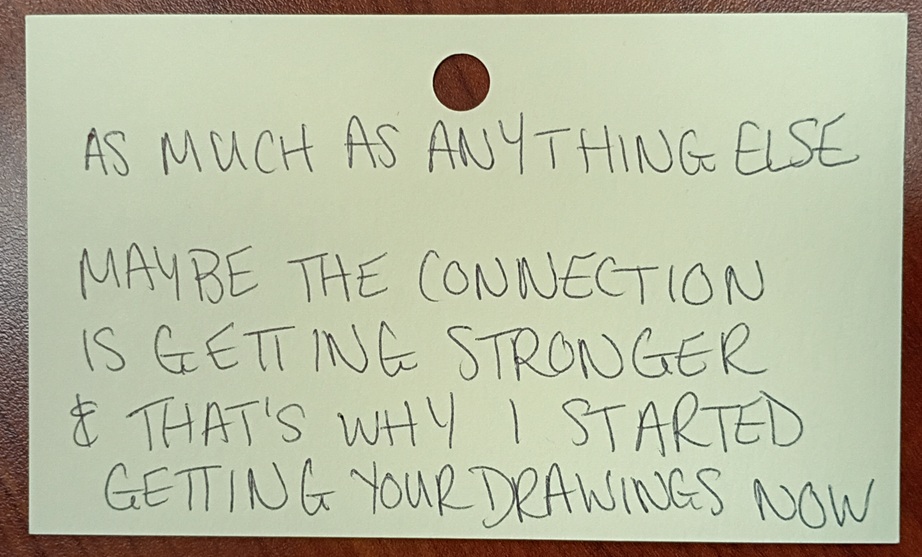 AS MUCH AS ANYTHING ELSE
MAYBE THE CONNECTION
IS GETTING STRONGER
& THAT'S WHY I STARTED
GETTING YOUR DRAWINGS NOW